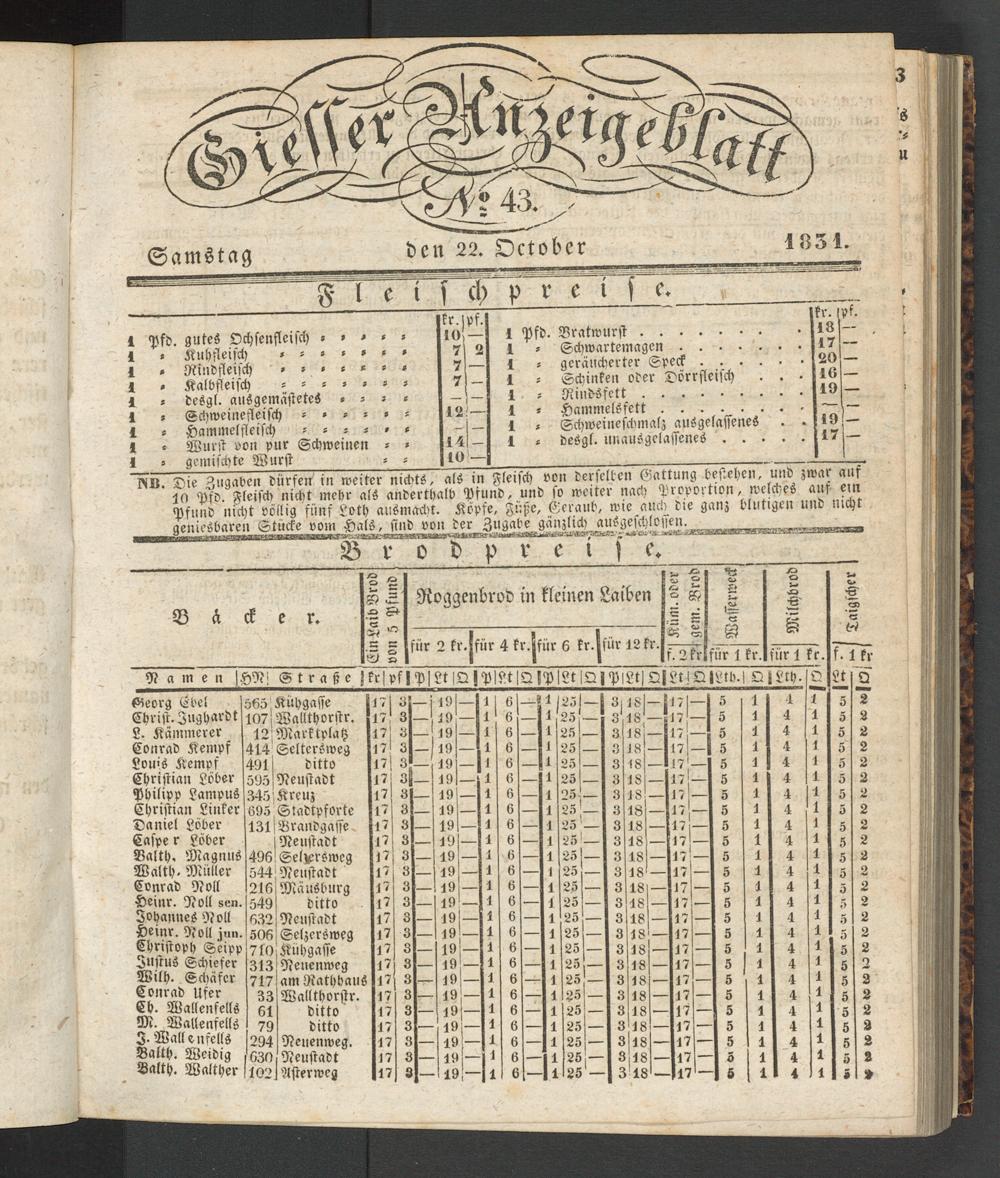 Giesser Anzeigeblatt
No 43.
Samstag den 22. October 1831.
Fleischpreise.
kr. pf.
1 Pfd. gutes Ochsenfleisch 10 —
1 „ Kuhfleisch 7 2
1 „ Rindfleisch 7 —
1 „ Kalbfleisch 7 —
1 „ desgl. ausgemästetes — —
1 „ Schweinefleisch 12 —
1 „ Hammelfleisch — —
1 „ Wurst von pur Schweinen 14 —
1 „ gemischte Wurst 10 —
kr. pf.
1 Pfd. Bratwurst 18 —
1 „ Schwartemagen 17 —
1 „ geräucherter Speck 20 —
1 „ Schinken oder Dörrfleisch 16 —
1 „ Rindsfett 19 —
1 „ Hammelsfett — —
1 „ Schweineschmalz ausgelassenes 19 —
1 „ desgl. unausgelassenes 17 —
NB. Die Zugaben dürfen in weiter nichts, als in Fleisch von derselben Gattung bestehen, und zwar auf
10 Pfd. Fleisch nicht mehr als anderthalb Pfund, und so weiter nach Proportion, welches auf ein
Pfund nicht völlig fünf Loth ausmacht. Köpfe, Füße, Geraub, wie auch die ganz blutigen und nicht
geniesbaren Stücke vom Hals, sind von der Zugabe gänzlich ausgeschlossen.
Brodpreise.
Bäcker.
Ein Laib Brod
von 5 Pfund
Roggenbrod in kleinen Laiben
für 2 kr. für 4 kr. für 6 kr. für 12 kr.
Küm. oder
gem. Brod
f. 2 kr
Wasserweck
für 1 kr.
Milchbrod
für 1 kr.
Taigscher
f. 1 kr
Namen HN Straße kr pf P Lt Q P Lt Q P Lt Q P Lt Q Lt Q Lth. Q Lth. Q Lt Q
Georg Ebel 565 Kühgasse 17 3 — 19 — 1 6 — 1 25 — 3 18 — 17 — 5 1 4 1 5 2
Christ. Jughardt 107 Wallthorstr. 17 3 — 19 — 1 6 — 1 25 — 3 18 — 17 — 5 1 4 1 5 2
L. Kämmerer 12 Marktplatz 17 3 — 19 — 1 6 — 1 25 — 3 18 — 17 — 5 1 4 1 5 2
Conrad Kempf 414 Seltersweg 17 3 — 19 — 1 6 — 1 25 — 3 18 — 17 — 5 1 4 1 5 2
Louis Kempf 491 ditto 17 3 — 19 — 1 6 — 1 25 — 3 18 — 17 — 5 1 4 1 5 2
Christian Löber 595 Neustadt 17 3 — 19 — 1 6 — 1 25 — 3 18 — 17 — 5 1 4 1 5 2
Philipp Lampus 345 Kreuz 17 3 — 19 — 1 6 — 1 25 — 3 18 — 17 — 5 1 4 1 5 2
Christian Linker 695 Stadtpforte 17 3 — 19 — 1 6 — 1 25 — 3 18 — 17 — 5 1 4 1 5 2
Daniel Löber 131 Brandgasse 17 3 — 19 — 1 6 — 1 25 — 3 18 — 17 — 5 1 4 1 5 2
Casper Löber Neustadt 17 3 — 19 — 1 6 — 1 25 — 3 18 — 17 — 5 1 4 1 5 2
Balth. Magnus 496 Selzersweg 17 3 — 19 — 1 6 — 1 25 — 3 18 — 17 — 5 1 4 1 5 2
Walth. Müller 544 Neustadt 17 3 — 19 — 1 6 — 1 25 — 3 18 — 17 — 5 1 4 1 5 2
Conrad Noll 216 Mäusburg 17 3 — 19 — 1 6 — 1 25 — 3 18 — 17 — 5 1 4 1 5 2
Heinr. Noll sen. 549 ditto 17 3 — 19 — 1 6 — 1 25 — 3 18 — 17 — 5 1 4 1 5 2
Johannes Noll 632 Neustadt 17 3 — 19 — 1 6 — 1 25 — 3 18 — 17 — 5 1 4 1 5 2
Heinr. Noll jun. 506 Selzersweg 17 3 — 19 — 1 6 — 1 25 — 3 18 — 17 — 5 1 4 1 5 2
Christoph Seipp 710 Kühgasse 17 3 — 19 — 1 6 — 1 25 — 3 18 — 17 — 5 1 4 1 5 2
Justus Schiefer 313 Neuenweg 17 3 — 19 — 1 6 — 1 25 — 3 18 — 17 — 5 1 4 1 5 2
Wilh. Schäfer 717 am Rathhaus 17 3 — 19 — 1 6 — 1 25 — 3 18 — 17 — 5 1 4 1 5 2
Conrad Ufer 33 Wallthorstr. 17 3 — 19 — 1 6 — 1 25 — 3 18 — 17 — 5 1 4 1 5 2
Ch. Wallenfells 61 ditto 17 3 — 19 — 1 6 — 1 25 — 3 18 — 17 — 5 1 4 1 5 2
M. Wallenfells 79 ditto 17 3 — 19 — 1 6 — 1 25 — 3 18 — 17 — 5 1 4 1 5 2
J. Wallenfells 294 Neuenweg. 17 3 — 19 — 1 6 — 1 25 — 3 18 — 17 — 5 1 4 1 5 2
Balth. Weidig 630 Neustadt 17 3 — 19 — 1 6 — 1 25 — 3 18 — 17 — 5 1 4 1 5 2
Balth. Walther 102 Asterweg 17 3 — 19 — 1 6 — 1 25 — 3 18 — 17 — 5 1 4 1 5 2